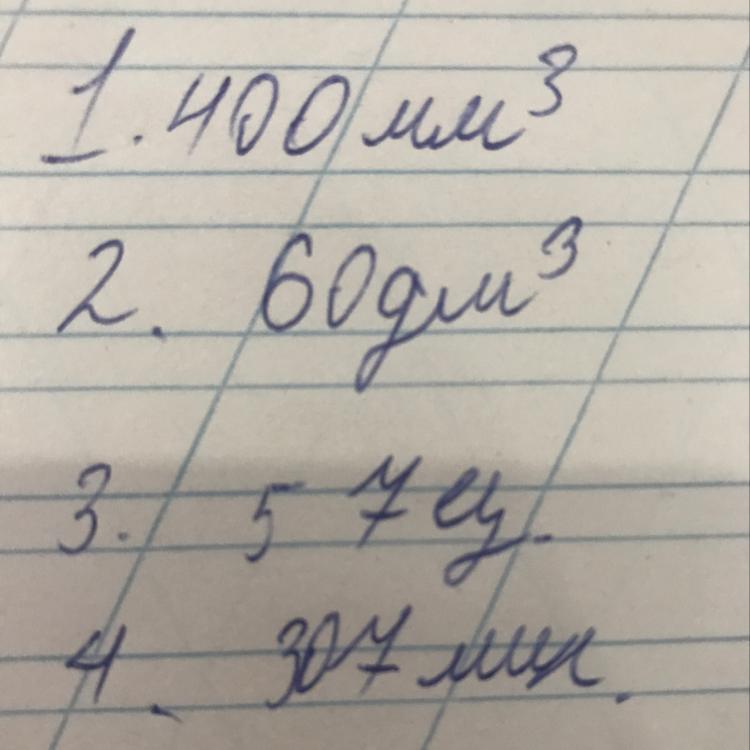 1. 400 мм³
2. 60 дм³
3. 57 ец.
4. 307 мин.